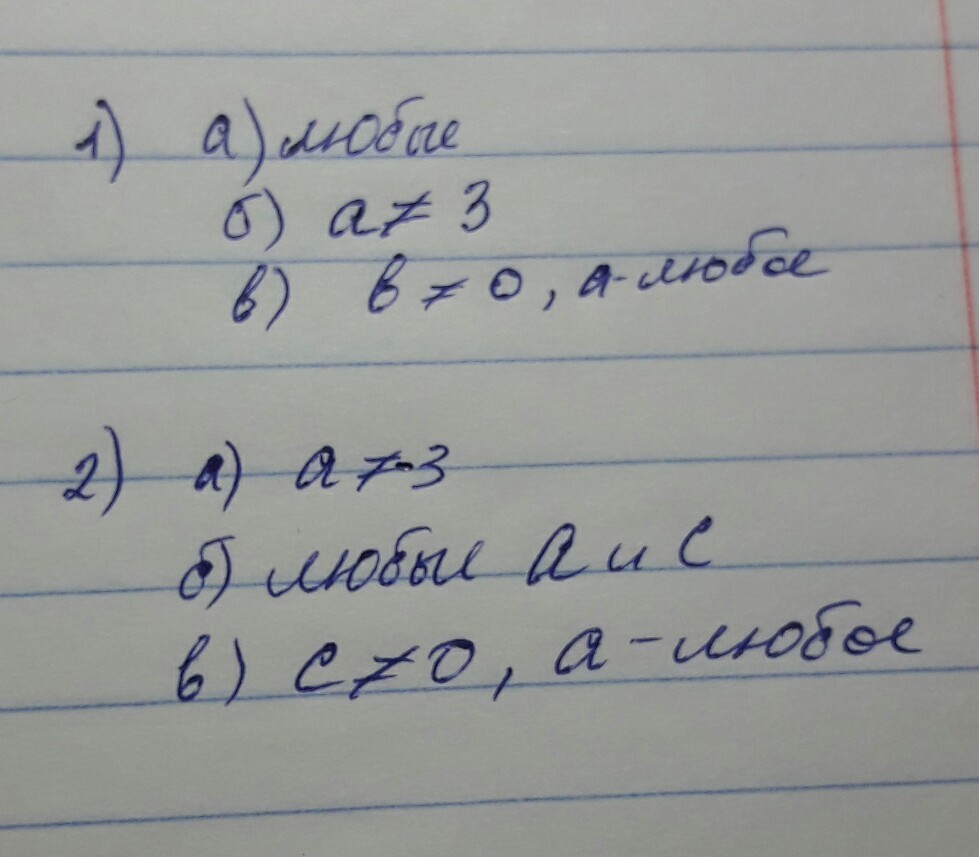 1) а) любые
б) a ≠ 3
в) в ≠ 0, а-любое
2) а) a ≠ -3
б) любые а и с
в) с ≠ 0, а - любое